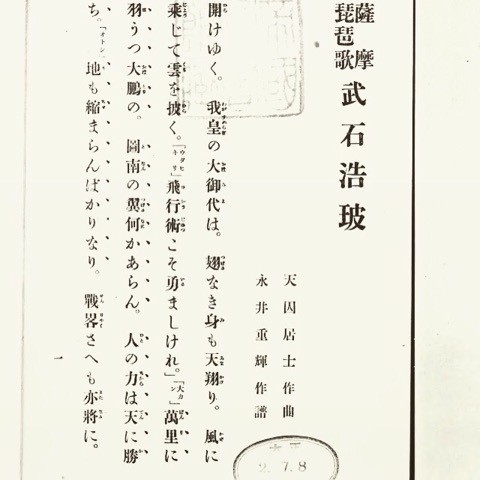 薩摩琵琶歌 武石浩玻
天囚居士作曲
永井重輝作譜
開けゆく。我皇の大御代は。翅なき身も天翔り。風に
乗じて雲を披く。「ウタヒキリ」飛行術こそ勇ましけれ。」「大カン」萬里に
羽うつ大鵬の。圖南の翼何かあらん。人の力は天に勝
ち。「オトシ」地も縮まらんばかりなり。戰畧さへも亦將に。
一
2.7.8